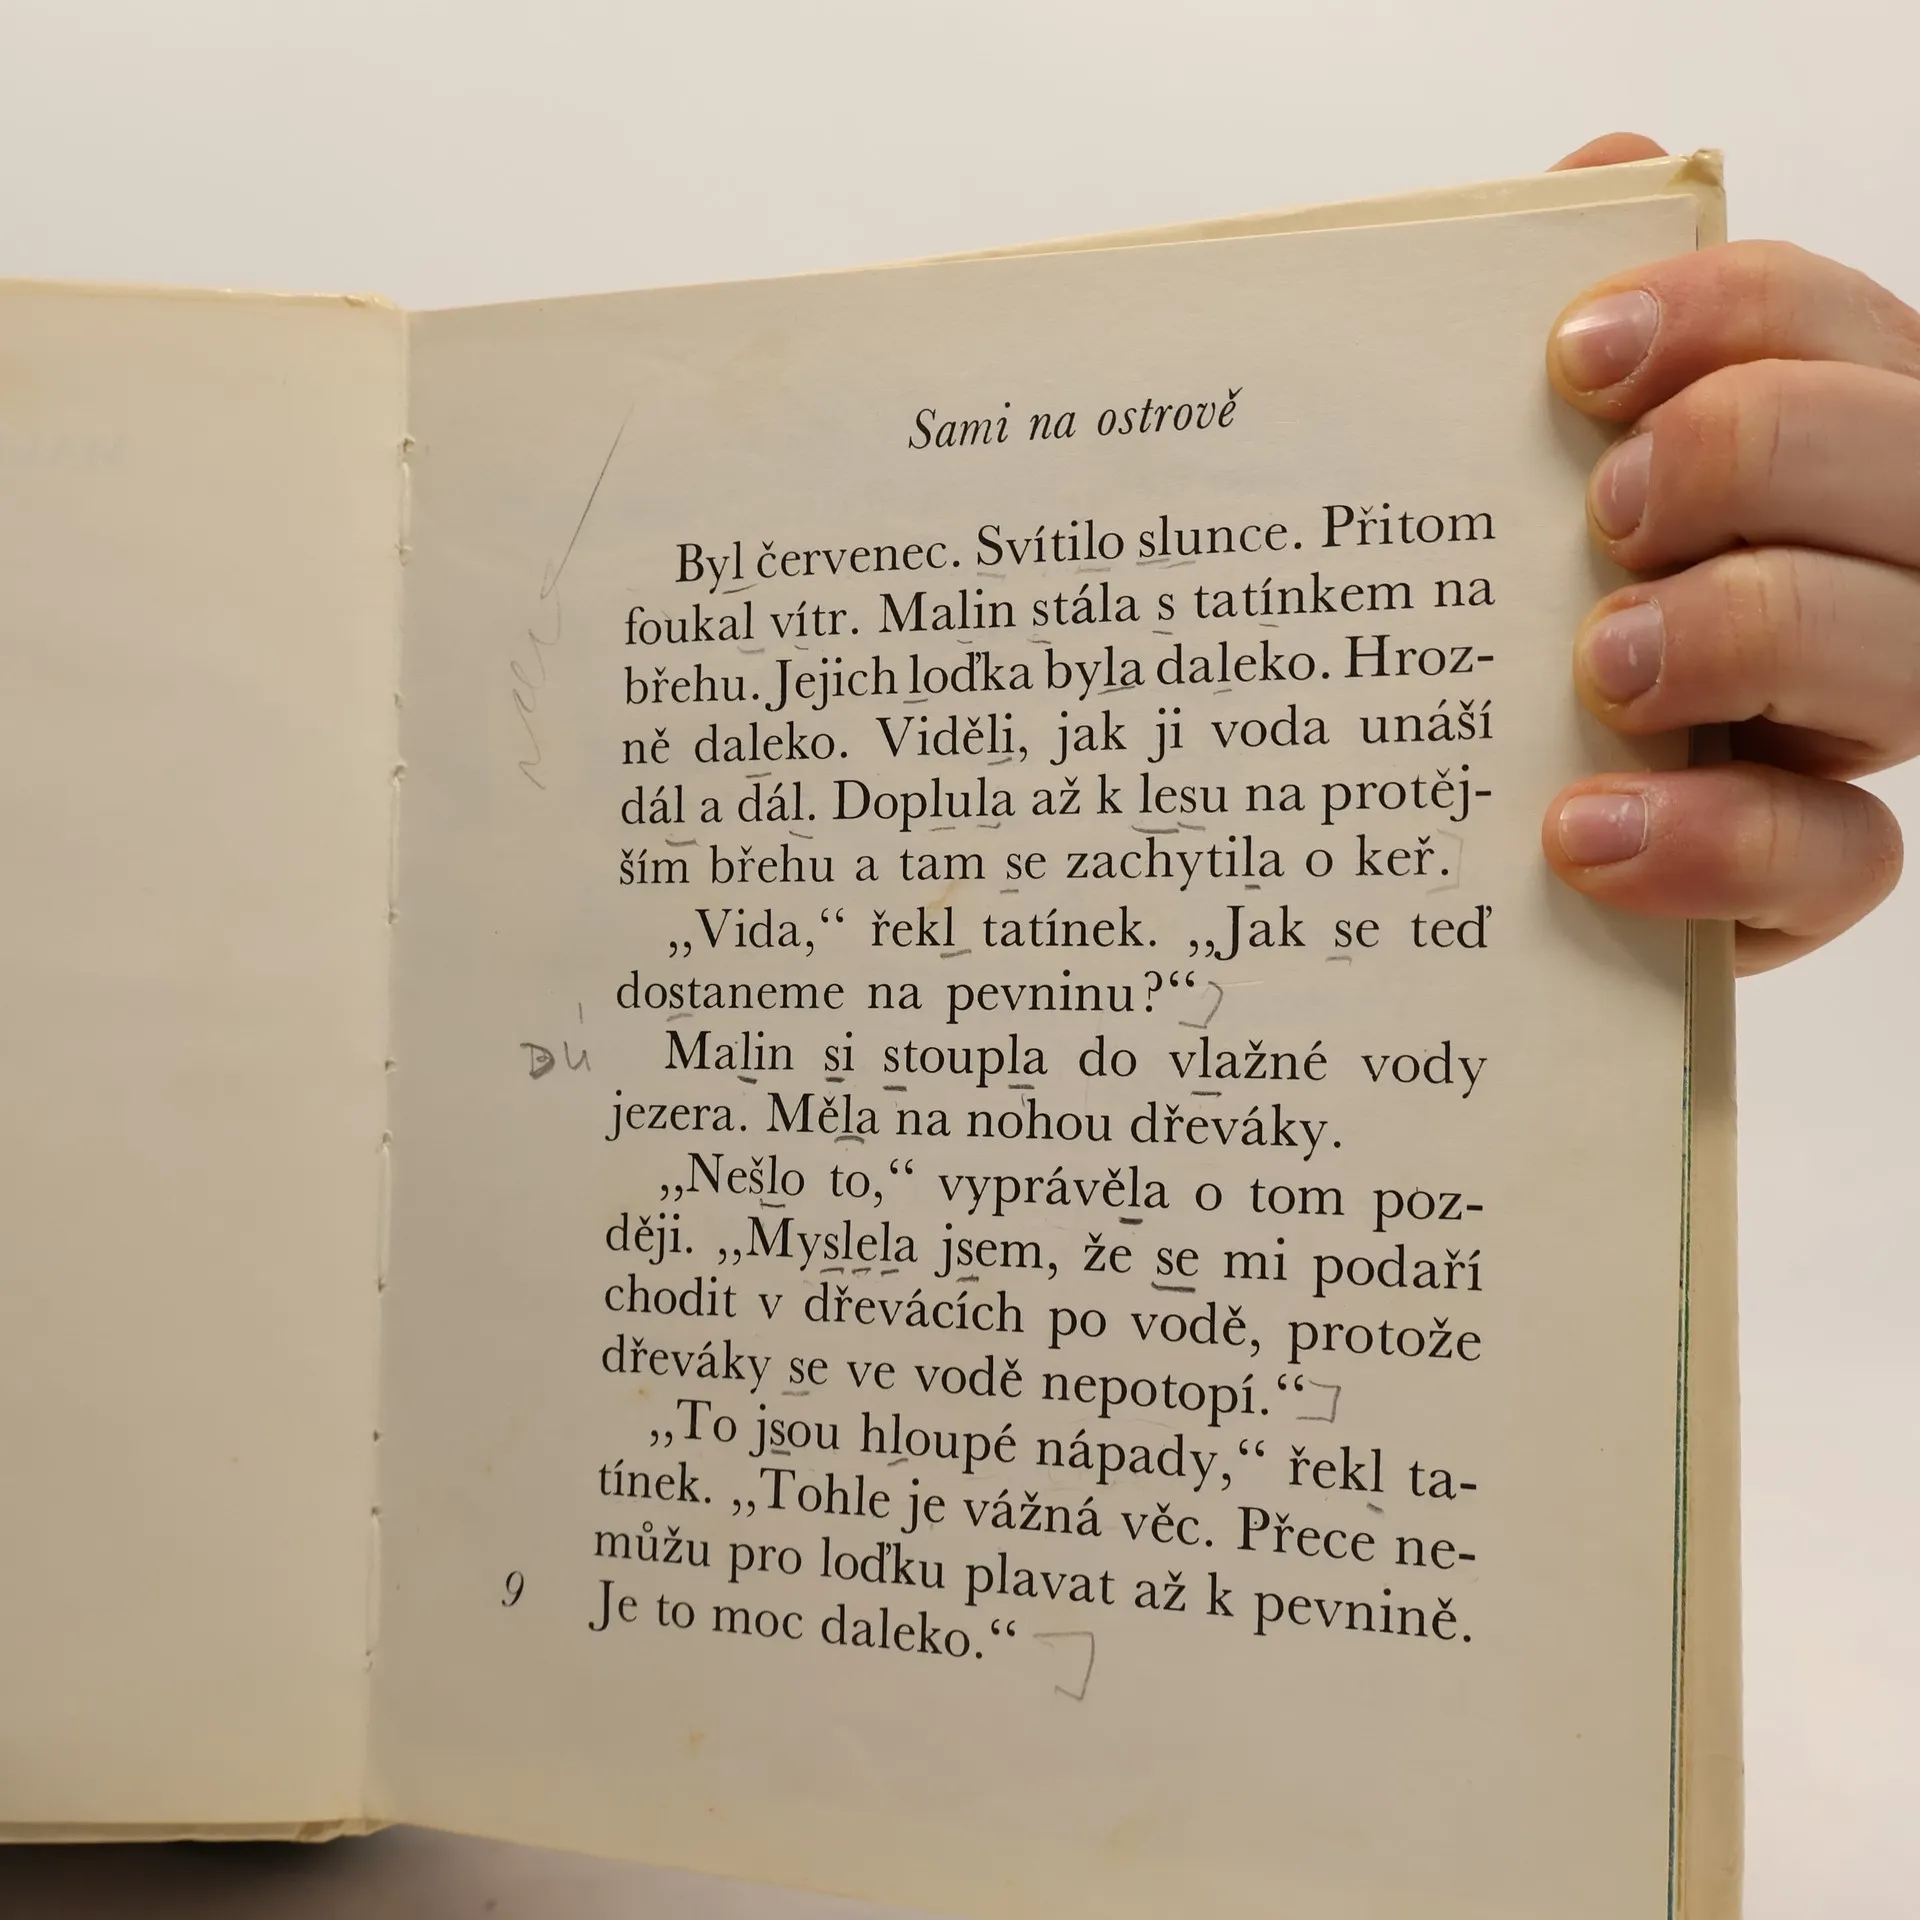 Sami na ostrově
Byl červenec. Svítilo slunce. Přitom
foukal vítr. Malin stála s tatínkem na
břehu. Jejich loďka byla daleko. Hroz-
ně daleko. Viděli, jak ji voda unáší
dál a dál. Doplula až k lesu na protěj-
ším břehu a tam se zachytila o keř.
„Vida,“ řekl tatínek. „Jak se teď
dostaneme na pevninu?“
DÚ
Malin si stoupla do vlažné vody
jezera. Měla na nohou dřeváky.
„Nešlo to,“ vyprávěla o tom poz-
ději. „Myslela jsem, že se mi podaří
chodit v dřevácích po vodě, protože
dřeváky se ve vodě nepotopí.“
„To jsou hloupé nápady,“ řekl ta-
tínek. „Tohle je vážná věc. Přece ne-
můžu pro loďku plavat až k pevnině.
Je to moc daleko.“
9